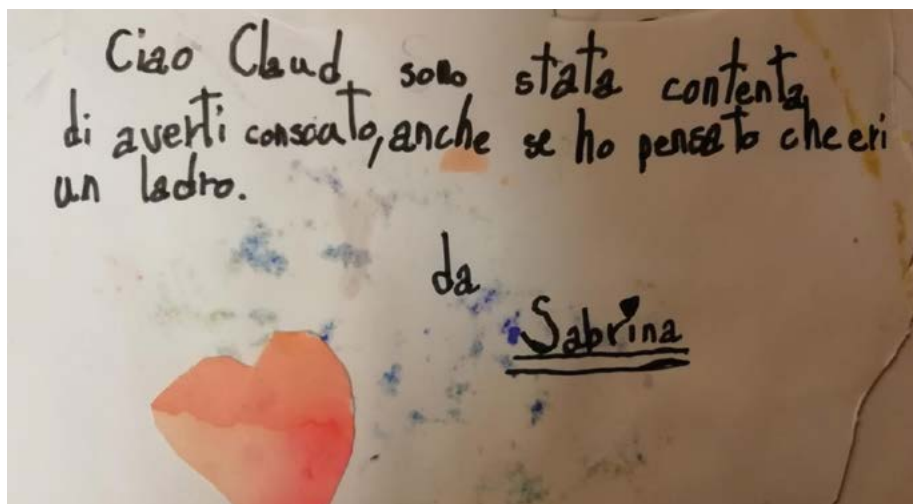 Ciao Claud, sono stata contenta
di averti consciato, anche se ho pensato che eri
un ladro.
da
Sabrina